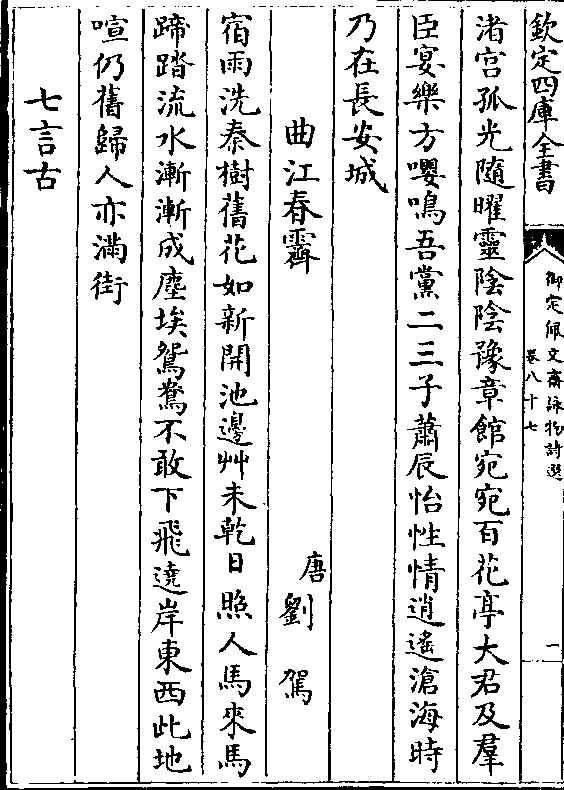 欽定四庫全書
御定佩文齋詠物詩選
卷八十七
一
渚宫孤光隨曜靈陰陰豫章館宛宛百花亭大君及羣
臣宴樂方嚶鳴吾黨二三子蕭辰怡性情逍遙滄海時
乃在長安城
曲江春霽
唐劉駕
宿雨洗秦樹舊花如新開池邊艸未乾日照人馬來馬
蹄踏流水漸漸成塵埃鴛鴦不敢下飛遶岸東西此地
喧仍舊歸人亦滿街
七言古